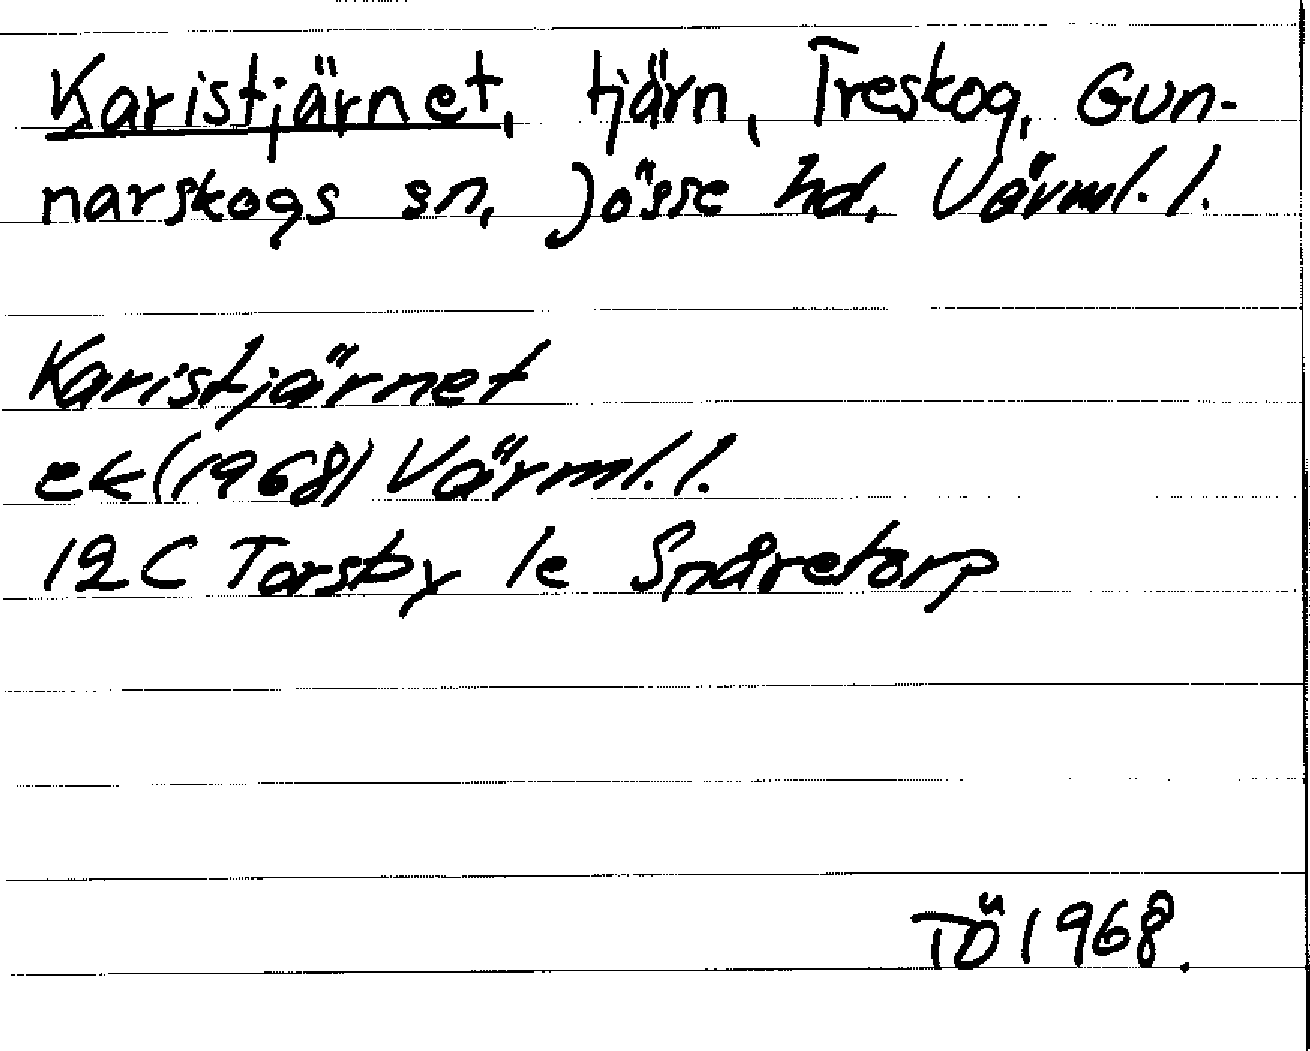 Karistjärnet, tjärn, Treskog, Gun-
narskogs sn, Jösse hd, Värml. l.
Karistjärnet
ek (1968) Värml. l.
12 C Torsby 1e Snåretorp
TÖ 1968.